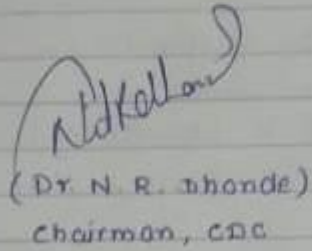 (Dr. N. R. Dhonde)
Chairman, CDC